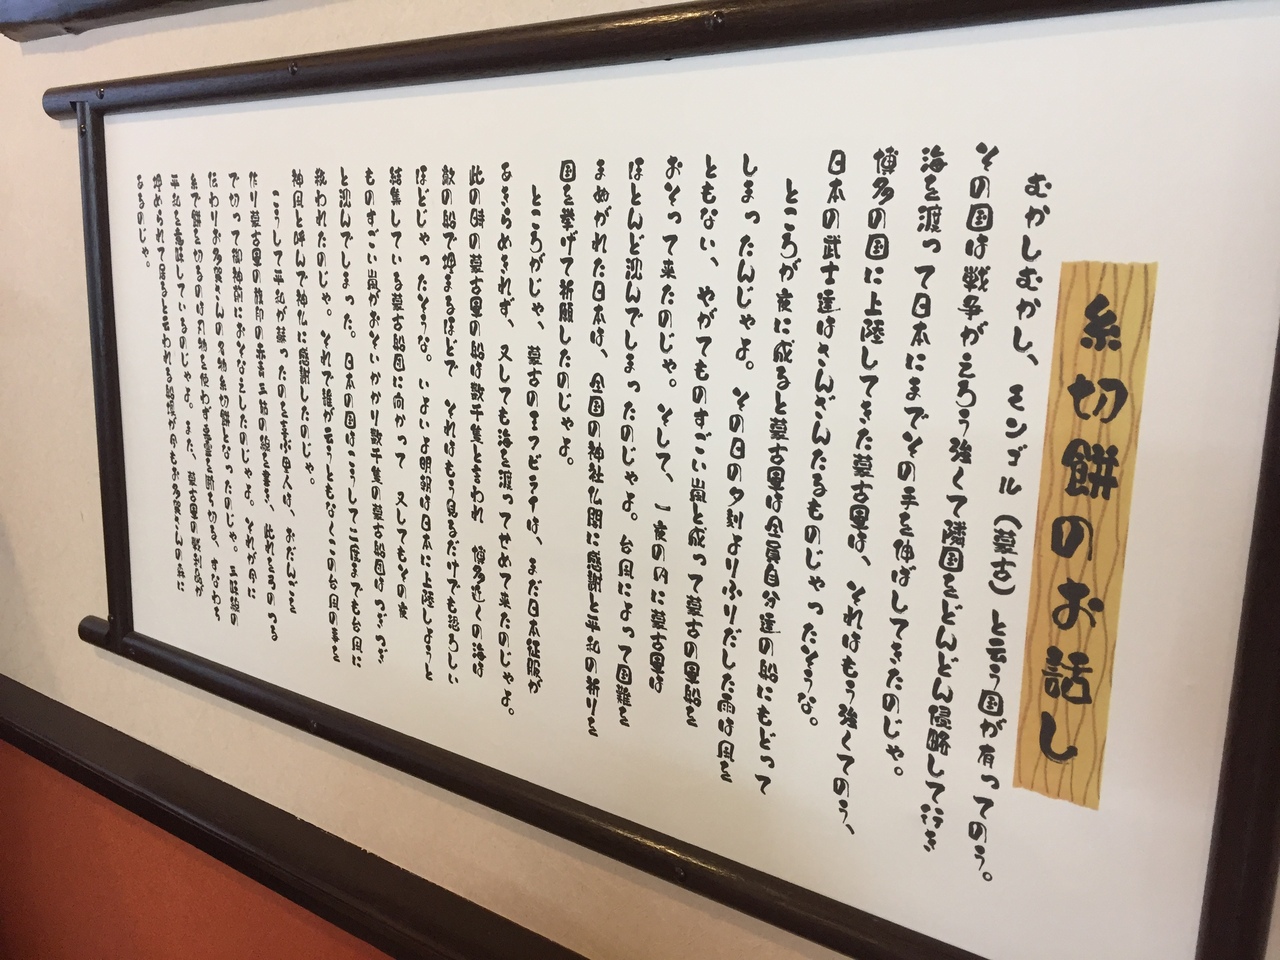 糸切餅のお話し
むかしむかし、モンゴル（蒙古）と云う国が有ってのう。
その国は戦争がえろう強くて隣国をどんどん侵略して行き
海を渡って日本にまでその手を伸ばしてきたのじゃ。
博多の国に上陸してきた蒙古軍は、それはもう強くてのう、
日本の武士達はさんざんたるものじゃったそうな。
ところが夜に成ると蒙古軍は全員自分達の船にもどって
しまったんじゃよ。その日の夕刻よりふりだした雨は風を
ともない、やがてものすごい嵐と成って蒙古の軍船を
おそって来たのじゃ。そして、一夜の内に蒙古軍は
ほとんど沈んでしまったのじゃよ。台風によって国難を
まぬがれた日本は、全国の神社仏閣に感謝と平和の祈りを
国を挙げて祈願したのじゃよ。
ところがじゃ、蒙古のフビライは、まだ日本征服が
あきらめきれず、又しても海を渡ってせめて来たのじゃよ。
此の時の蒙古軍の船は数千隻と言われ 博多近くの海は
敵の船で埋まるほどで それはもう見るだけでも恐ろしい
ほどじゃったそうな。いよいよ明朝は日本に上陸しようと
結集している蒙古船団に向かって 又してもその夜
ものすごい嵐がおそいかかり数千隻の蒙古船団はつぎつぎ
と沈んでしまった。日本の国はこうして二度までも台風に
救われたのじゃ。それで誰が云うともなくこの台風の事を
神風と呼んで神仏に感謝したのじゃ。
こうして平和が蘇ったのを喜ぶ里人は、おだんごを
作り蒙古軍の旗印の赤青三筋の線を書き、此れを弓のつる
で切って御神前におそなえしたのじゃよ。それが今に
伝わりお多賀さんの名物糸切餅となったのじゃ。三味線の
糸で餅を切るのは刃物を使わず悪霊を断ち切る、すなわち
平和を意味しているのじゃよ。また、蒙古軍の戦利品が
埋められて居ると云われる船塚が今もお多賀さんの森に
あるのじゃ。